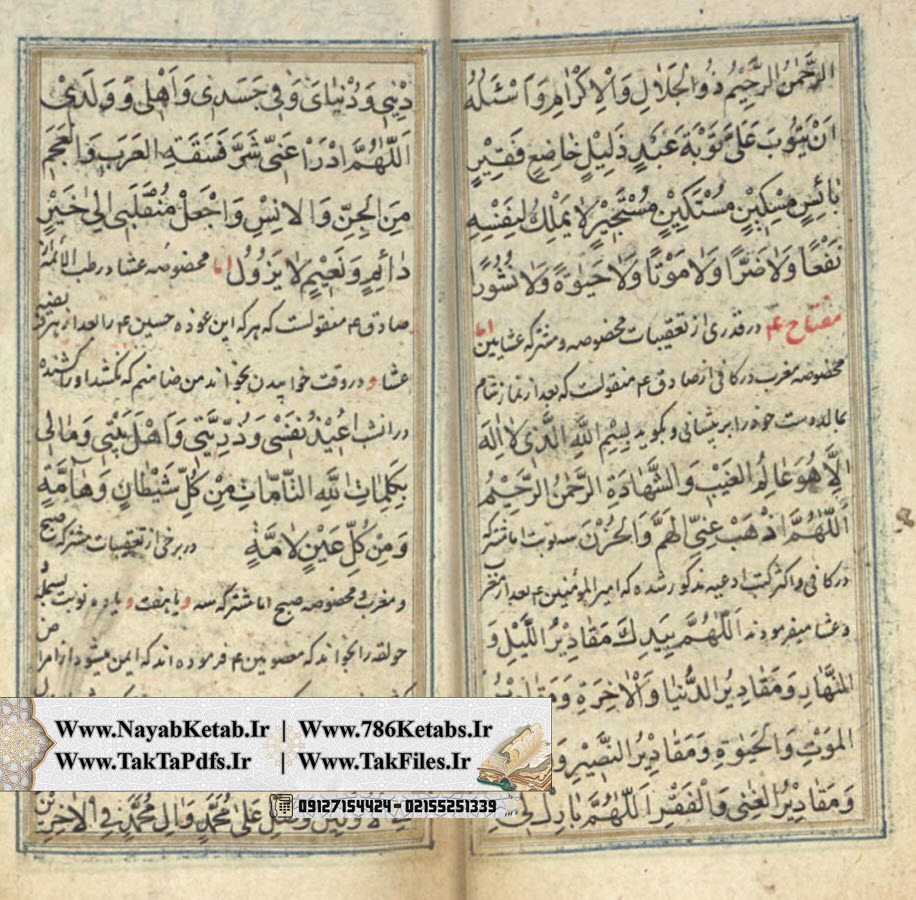 الرَّحْمٰنُ الرَّحِيْمُ ذُو الْجَلَالِ وَالْاِكْرَامِ وَاَسْئَلُهُ
اَنْ يَتُوْبَ عَلَيَّ تَوْبَةَ عَبْدٍ ذَلِيْلٍ خَاضِعٍ فَقِيْرٍ
بَائِسٍ مِسْكِيْنٍ مُسْتَكِيْنٍ مُسْتَجِيْرٍ لَا يَمْلِكُ لِنَفْسِهِ
نَفْعًا وَلَا ضَرًّا وَلَا مَوْتًا وَلَا حَيٰوةً وَلَا نُشُوْرًا
مفتاح در قدری از تعقیبات مخصوصه و مشترکه عشایین اما
مخصوصه مغرب در کافی از صادق ع منقولست که بعد از نماز شام
بمالد دست خود را بر پیشانی و بگوید بِسْمِ اللّٰهِ الَّذِيْ لَا اِلٰهَ
اِلَّا هُوَ عَالِمُ الْغَيْبِ وَالشَّهَادَةِ الرَّحْمٰنُ الرَّحِيْمُ
اَللّٰهُمَّ اذْهَبْ عَنِّي الْهَمَّ وَالْحُزْنَ سه نوبت اما مشترکه
در کافی و اکثر کتب ادعیه مذکور شده که امیر المؤمنین ع بعد از مغرب
و عشا میفرمودند اَللّٰهُمَّ بِيَدِكَ مَقَادِيْرُ اللَّيْلِ وَ
النَّهَارِ وَمَقَادِيْرُ الدُّنْيَا وَالْاٰخِرَةِ وَمَقَادِيْرُ
الْمَوْتِ وَالْحَيٰوةِ وَمَقَادِيْرُ النَّصْرِ وَ
وَمَقَادِيْرُ الْغِنٰى وَالْفَقْرِ اَللّٰهُمَّ بَارِكْ لِيْ
دِيْنِيْ وَدُنْيَايَ وَفِيْ جَسَدِيْ وَاَهْلِيْ وَوَلَدِيْ
اَللّٰهُمَّ ادْرَاْ عَنِّيْ شَرَّ فَسَقَةِ الْعَرَبِ وَالْعَجَمِ
مِنَ الْجِنِّ وَالْاِنْسِ وَاجْعَلْ مُنْقَلَبِيْ اِلٰى خَيْرٍ
دَائِمٍ وَنَعِيْمٍ لَا يَزُوْلُ اما مخصوصه عشا در طب الائمه
صادق ع منقولست که هر که این عوذه حسین ع را بعد از هر فریضه
عشا و در وقت خوابیدن بخواند من ضامنم که نکشد او را کشنده
اُعِيْذُ نَفْسِيْ وَذُرِّيَّتِيْ وَاَهْلَ بَيْتِيْ وَمَالِيْ
بِكَلِمَاتِ اللّٰهِ التَّامَّاتِ مِنْ كُلِّ شَيْطَانٍ وَهَامَّةٍ
وَمِنْ كُلِّ عَيْنٍ لَامَّةٍ در برخی از تعقیبات مشترکه صبح
و مغرب و مخصوصه صبح اما مشترکه سه و یا هفت و یا ده نوبت بسمله
حولقه را بخواند که معصومین ع فرموده اند که ایمن میشود از امراض
عَلٰى مُحَمَّدٍ وَاٰلِ مُحَمَّدٍ فِي الْاٰخِرِيْنَ
Www.NayabKetab.Ir | Www.786Ketabs.Ir
Www.TakTaPdfs.Ir | Www.TakFiles.Ir
09127154424 - 02155251339